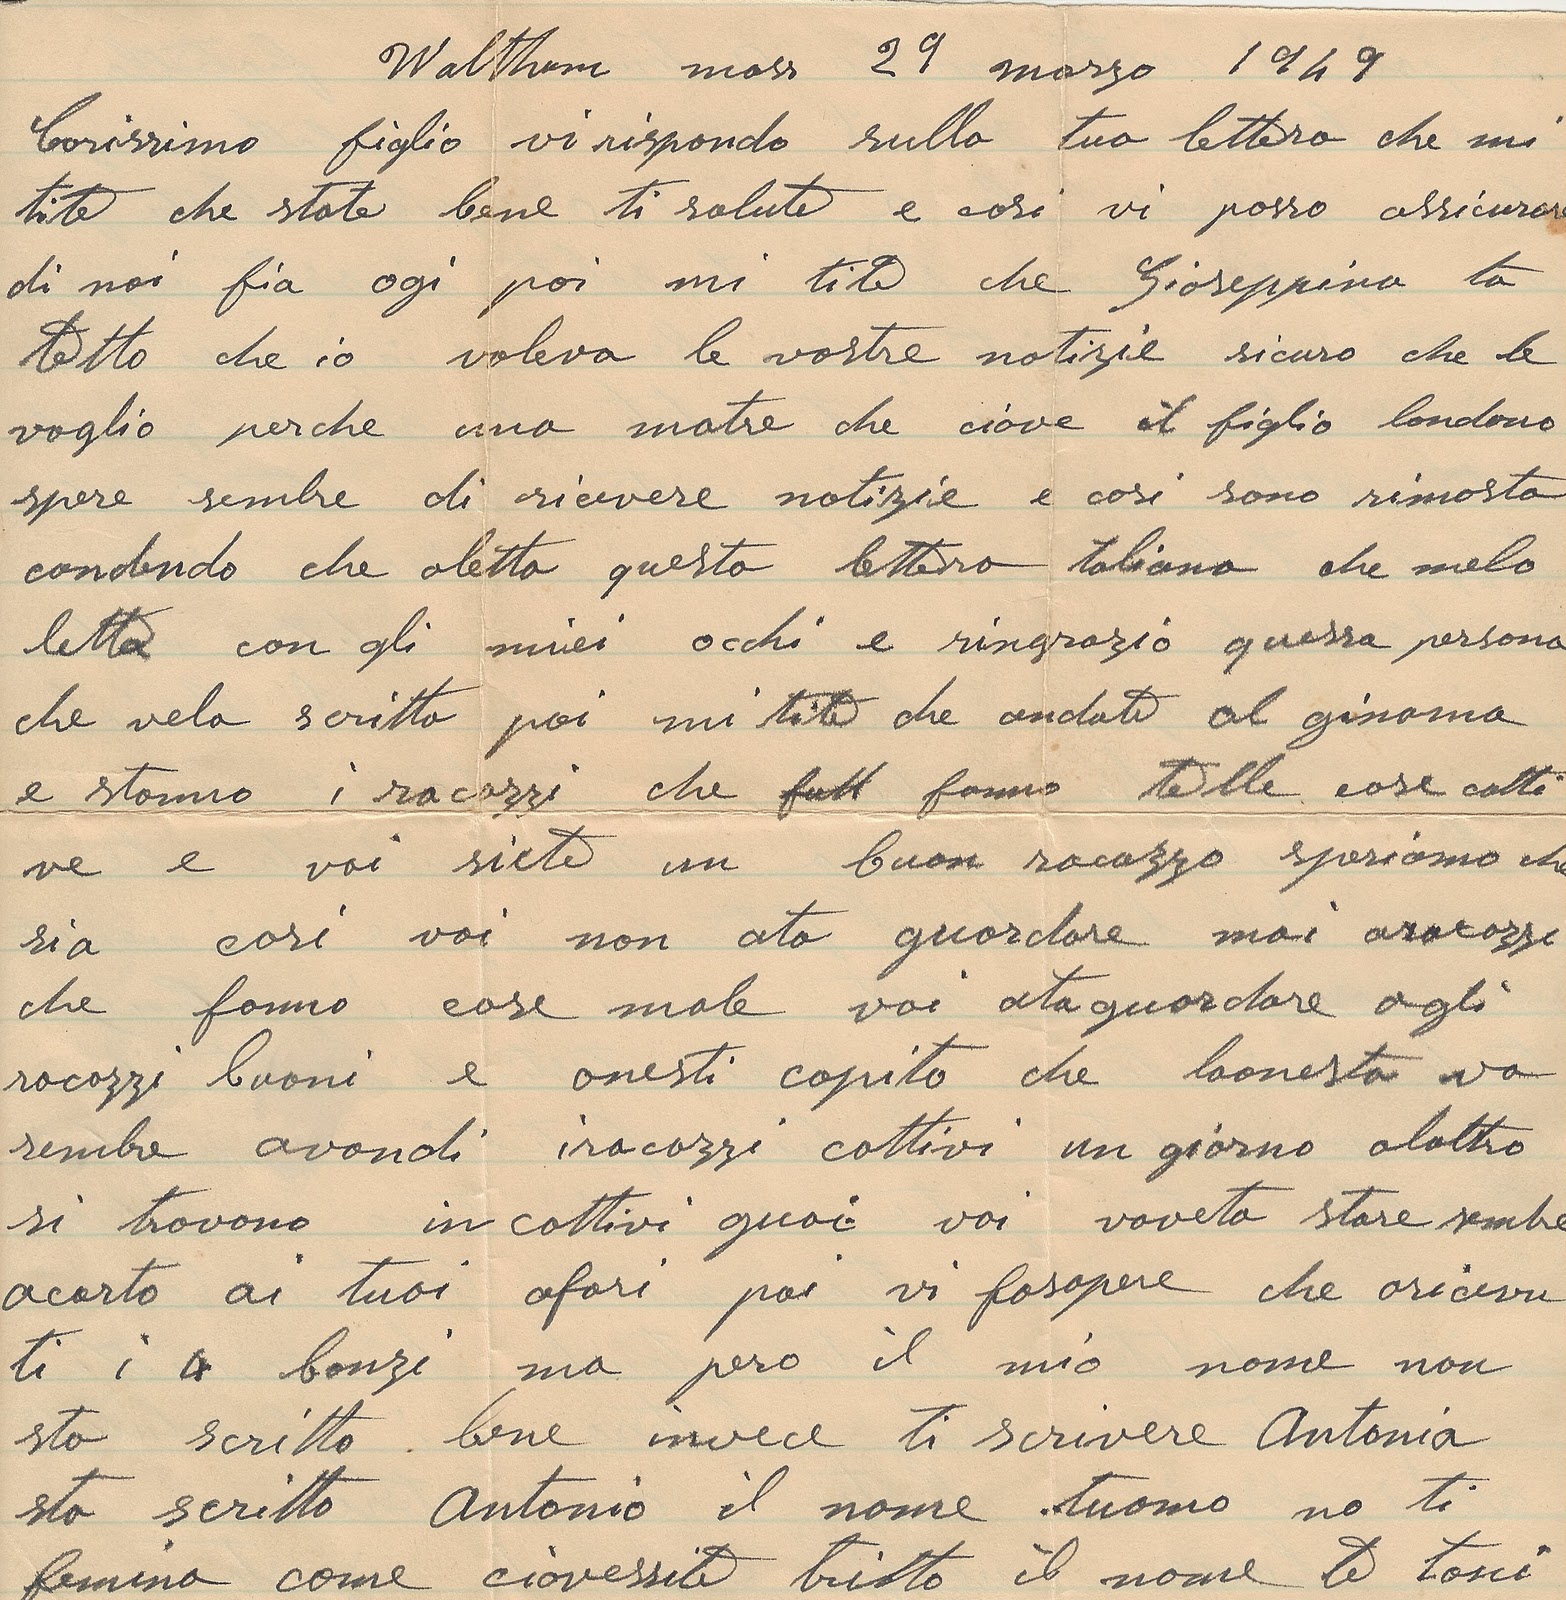 Waltham mass 29 marzo 1949
Carissimo figlio vi rispondo sulla tua lettera che mi
tite che state bene ti salute e cosi vi posso assicurare
di noi fia ogi poi mi tite che Gioseppina ta
tetto che io voleva le vostre notizie sicuro che le
voglio perche una matre che ciave il figlio londano
spere sembre di ricevere notizie e cosi sono rimasta
condendo che aletto questa lettera taliana che melo
letta con gli miei occhi e ringrazio quessa persona
che vela scritta poi mi tite che andate al ginama
e stanno i racazzi che fanno telle cose catti
ve e voi siete un buon racazzo speriamo che
sia cosi voi non ata guardare mai aracazzi
che fanno cose male voi ata guardare agli
racazzi buoni e onesti capito che laonesta va
sembre avandi iracazzi cattivi un giorno alattro
si trovano in cattivi guai voi vaveta stare sembre
acorto ai tuoi afari poi vi fasapere che aricevu
ti i 4 bonzi ma pero il mio nome non
sta scritto bene invece ti scrivere Antonia
sta scritto Antonio il nome tuomo no ti
femina come ciavessite tritto il nome te toni